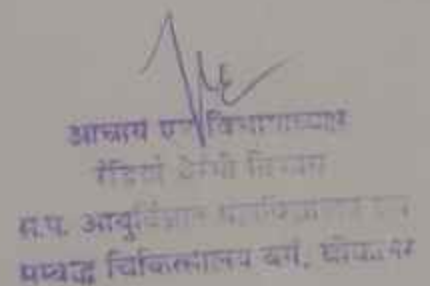 आचार्य एवं विभागाध्यक्ष
रेडियो थेरेपी विभाग
स.प. आयुर्विज्ञान महाविद्यालय एवं
सम्बद्ध चिकित्सालय वर्ग, बीकानेर